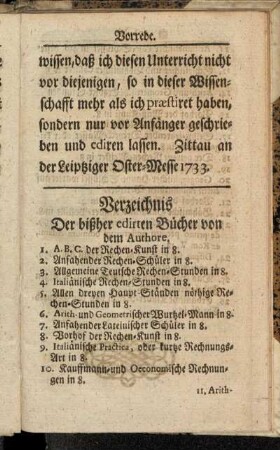 Vorrede.
wissen, daß ich diesen Unterricht nicht
vor diejenigen, so in dieser Wissen-
schafft mehr als ich præstiret haben,
sondern nur vor Anfänger geschrie-
ben und ediren lassen. Zittau an
der Leipziger Oster-Messe 1733.
Verzeichnis
Der bißher edirten Bücher von
dem Authore,
1. A. B. C. der Rechen-Kunst in 8.
2. Anfahender Rechen-Schüler in 8.
3. Allgemeine Teutsche Rechen-Stunden in 8.
4. Italiänische Rechen-Stunden in 8.
5. Allen dreyen Haupt-Ständen nöthige Re-
chen-Stunden in 8.
6. Arith- und Geometrischer Wurtzel-Mann in 8.
7. Anfahender Lateinischer Schüler in 8.
8. Vorhof der Rechen-Kunst in 8.
9. Italiänische Practica, oder kurtze Rechnungs-
Art in 8.
10. Kauffmann- und Oeconomische Rechnun-
gen in 8.
11. Arith-